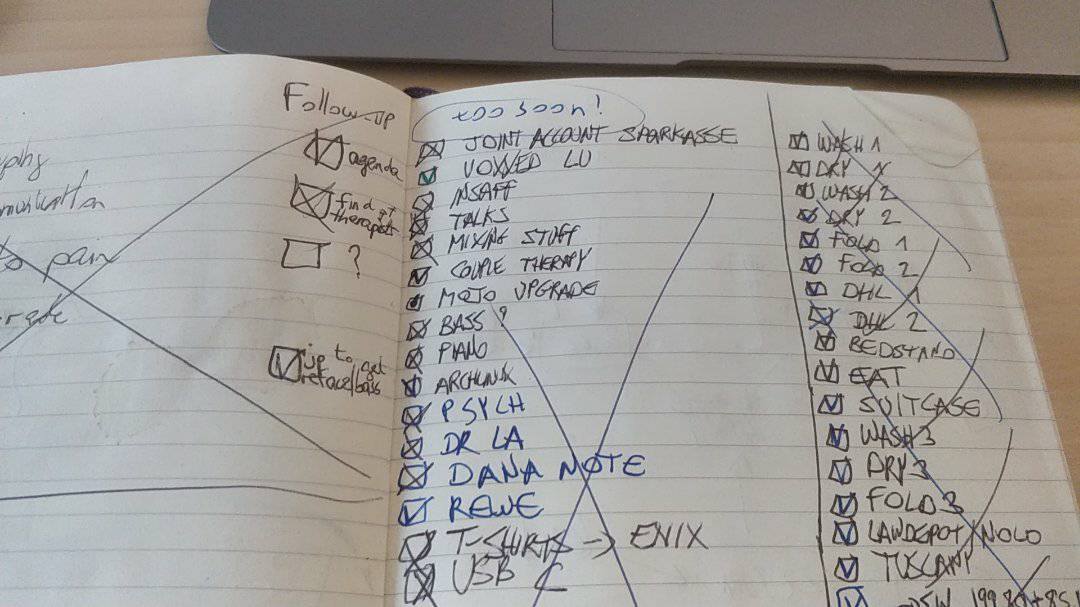 to pain
Follow-up
agenda
find
therapist
?
up to get
too soon!
JOINT ACCOUNT SPARKASSE
VOXXED LU
INSAFF
TALKS
MIXING STUFF
COUPLE THERAPY
MOJO UPGRADE
BASS?
PIANO
PSYCH
DR LA
DANA NOTE
REWE
T-SHIRTS → ENIX
USB C
WASH 1
DRY 1
WASH 2
DRY 2
FOLD 1
FOLD 2
DHL 1
DHL 2
BEDSTAND
EAT
SUITCASE
WASH 3
DRY 3
FOLD 3
LAWDEPOT NOLO
TUSCANY